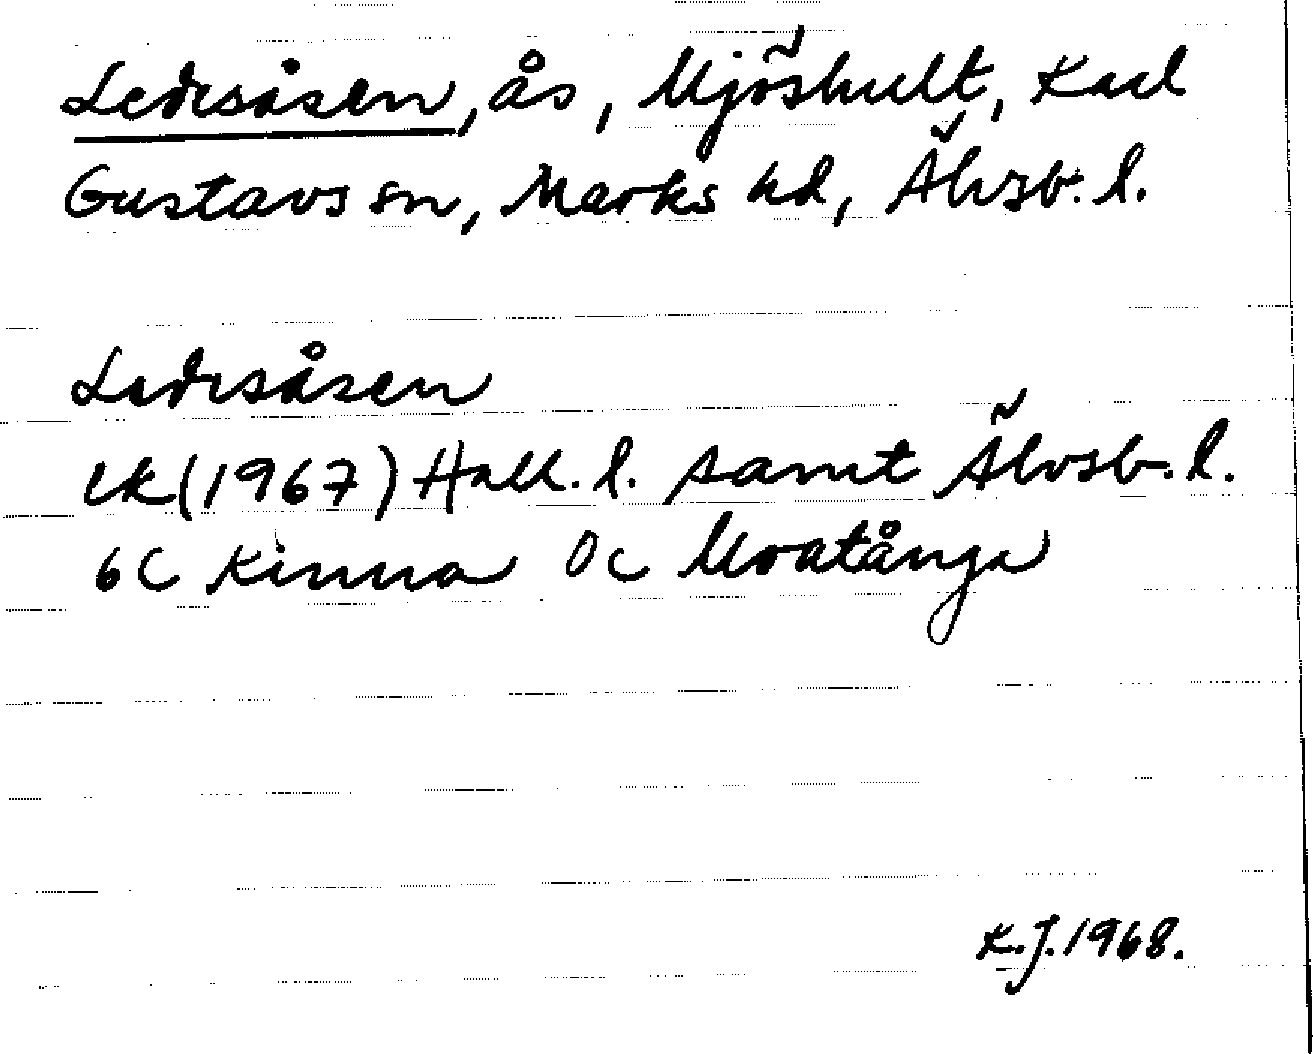 Ledesåsen, ås, Mjöshult, Karl
Gustavs sn, Marks hd, Älvsb. l.
Ledesåsen
ek (1967) Hall. l. samt Älvsb. l.
6C Kinna 0c Moatånga
K.J. 1968.